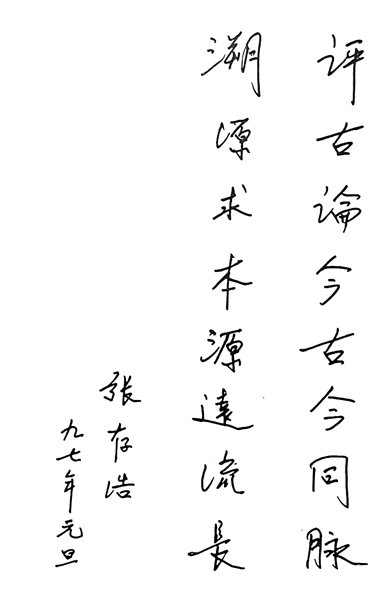 评古論今古今同脉
溯源求本源遠流長
張存浩
九七年元旦